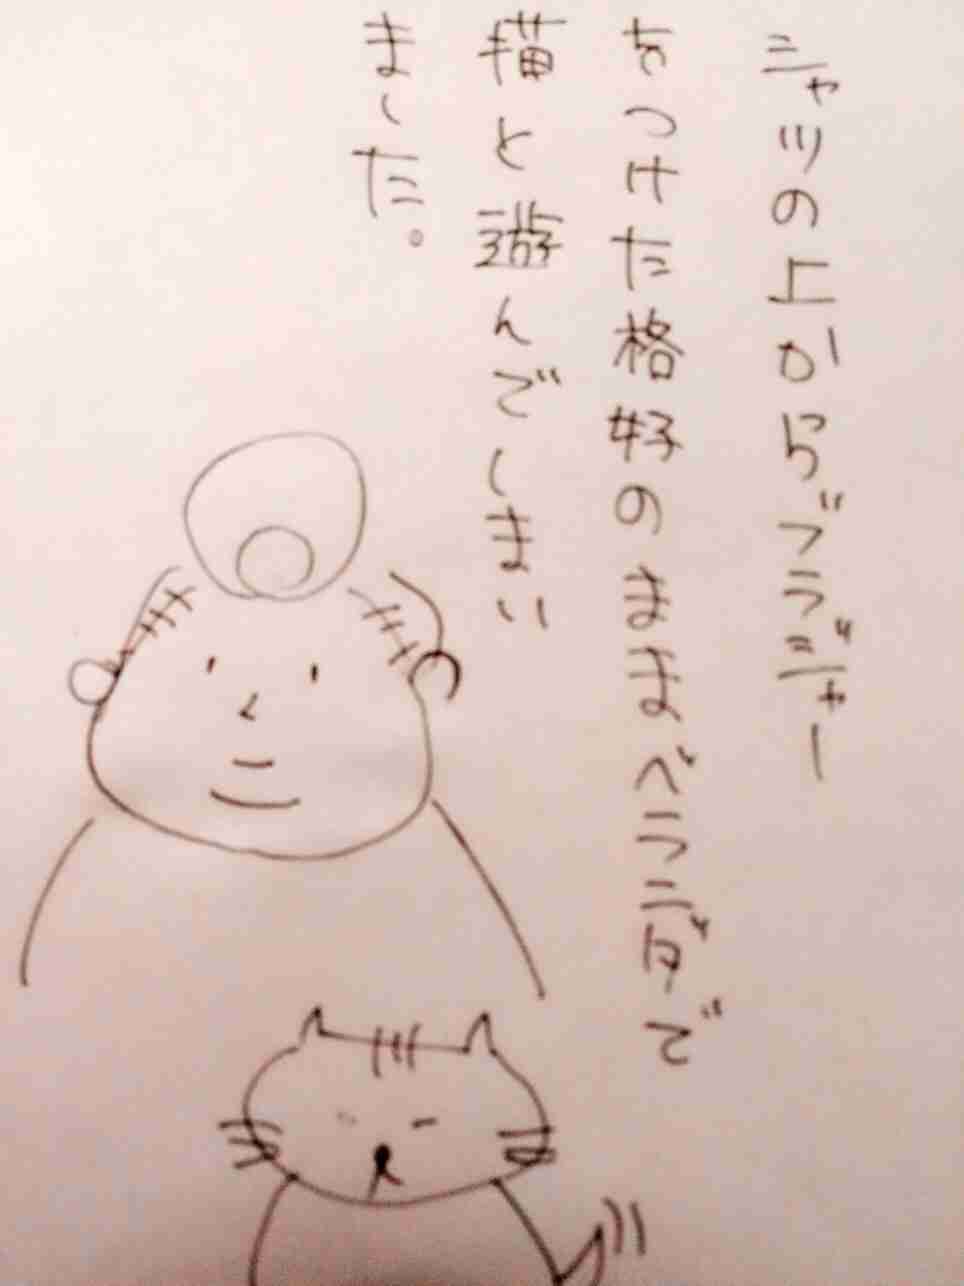 シャツの上からブラジャー
をつけた格好のままベランダで
猫と遊んでしまい
ました。